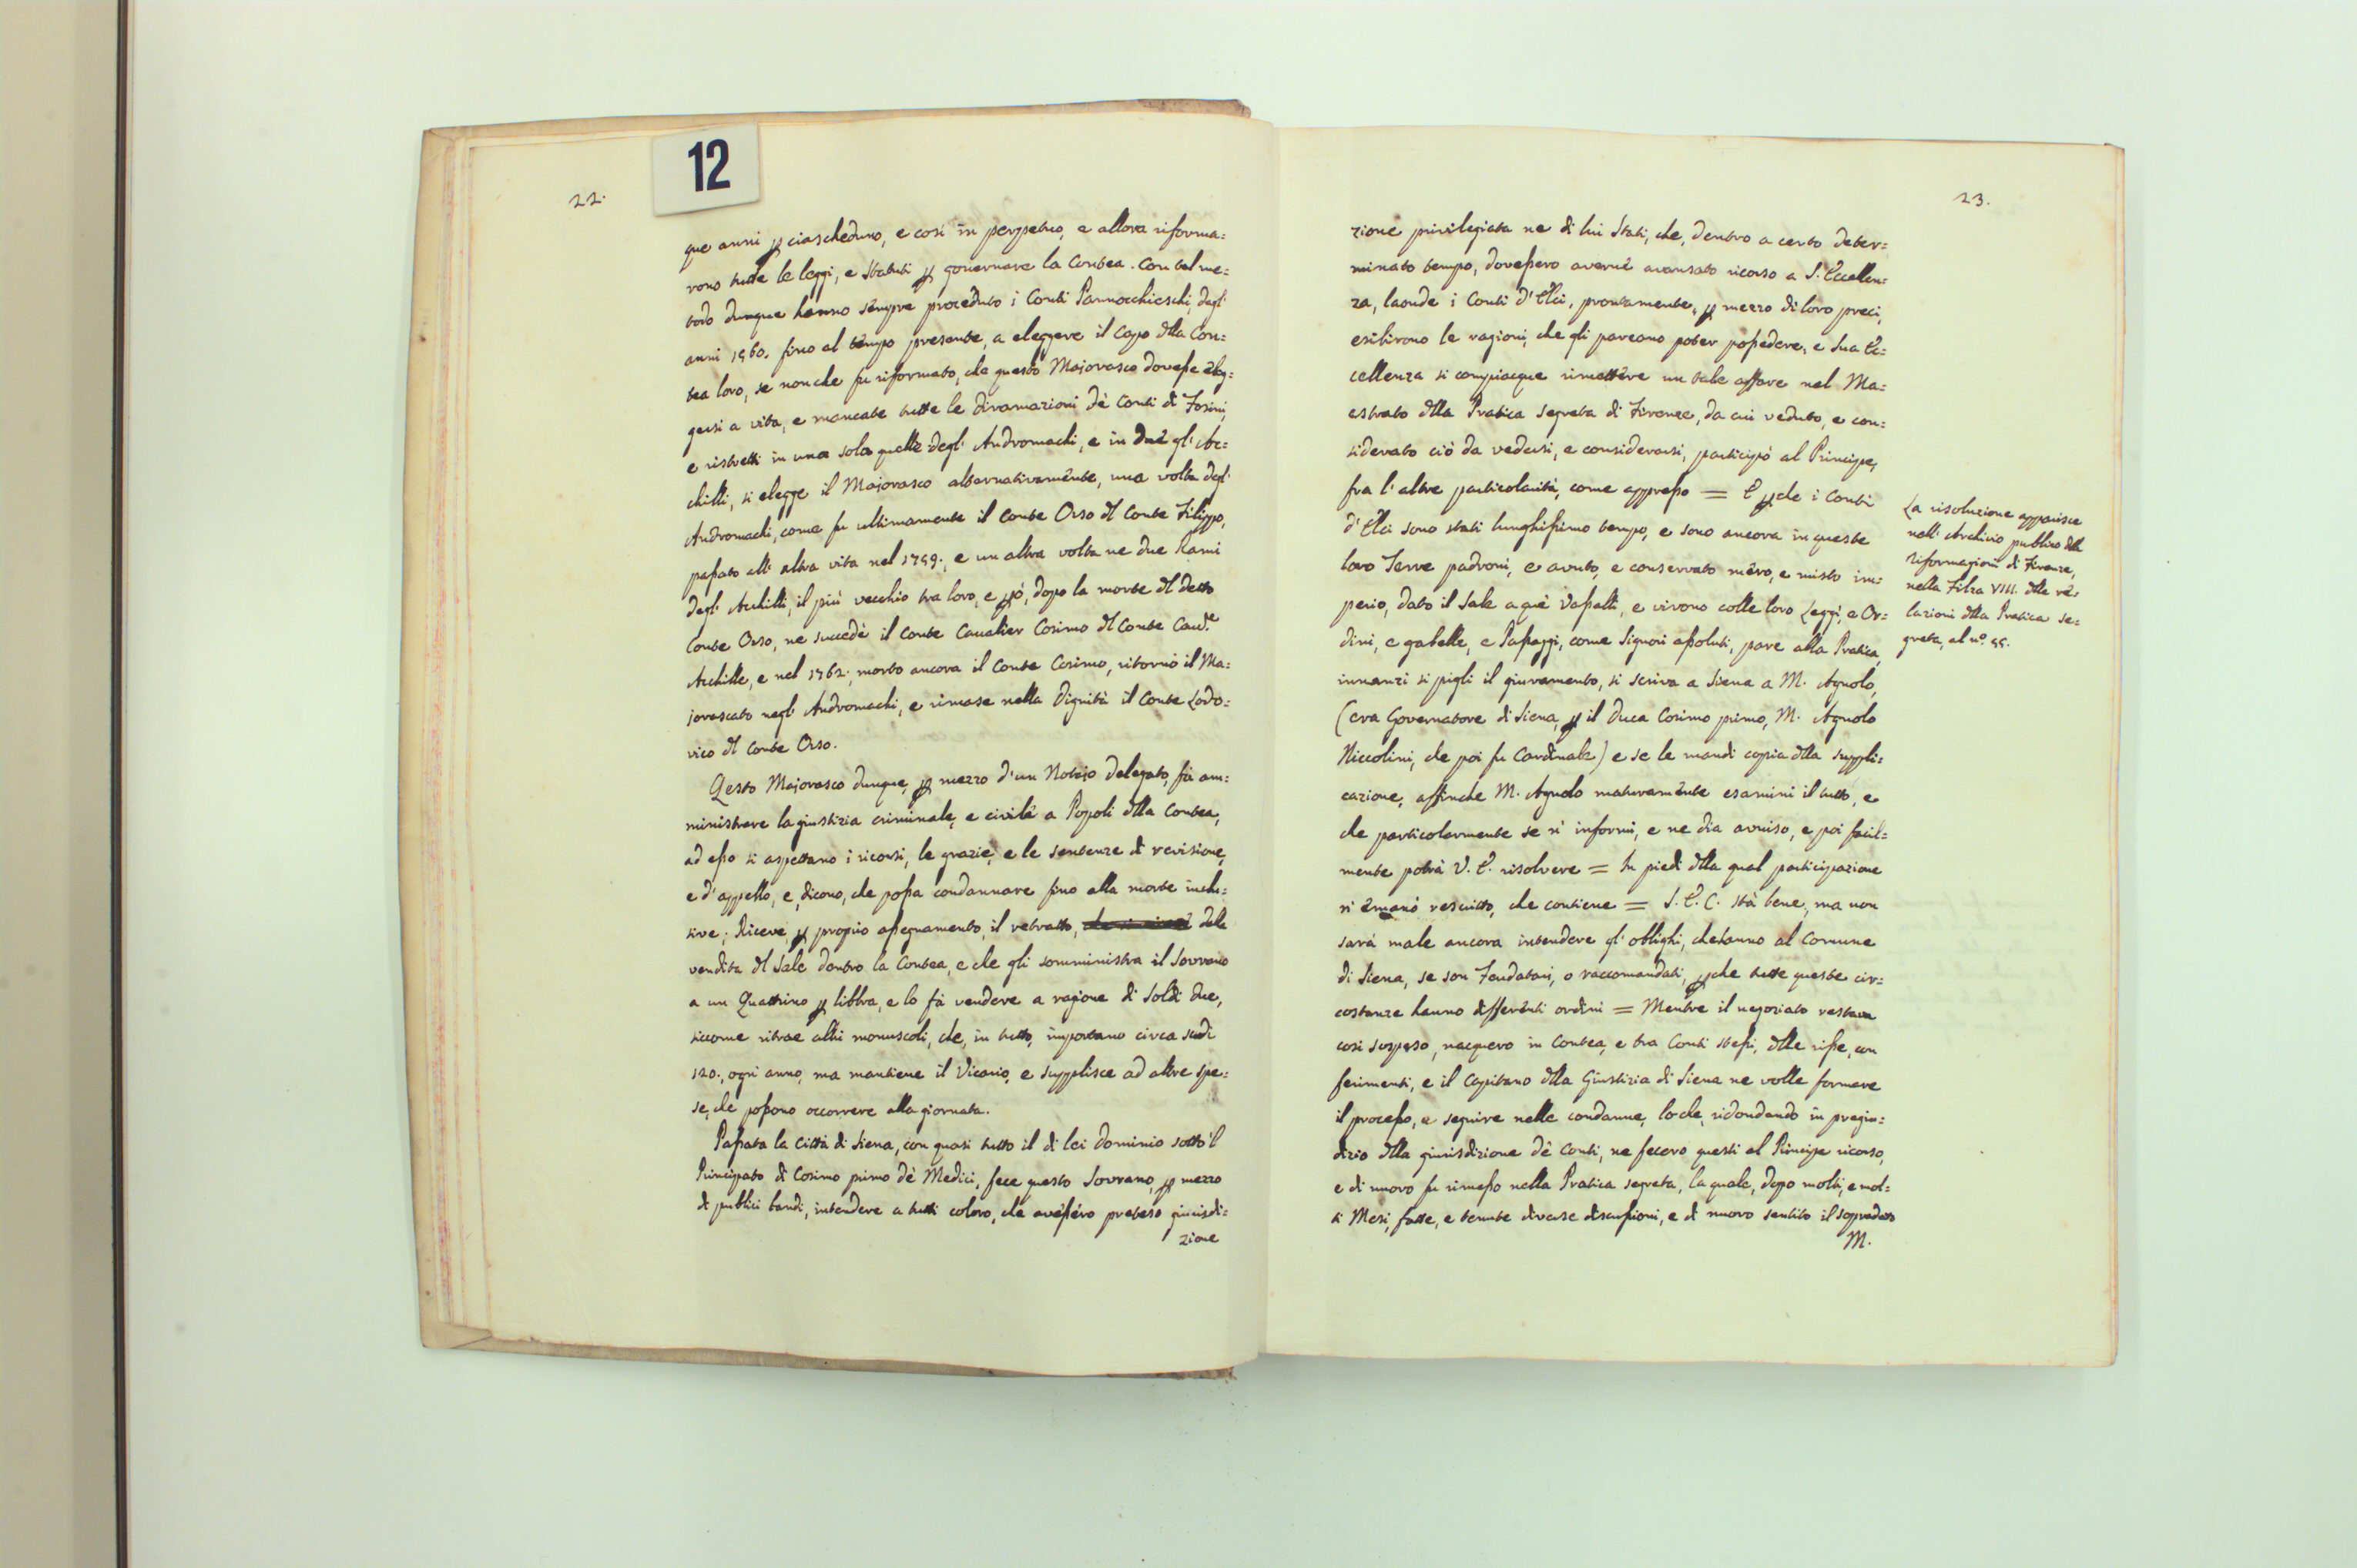 12
22.
que anni ꝑ ciascheduno, e così in perpetuo, e allora riforma=
rono tutte le leggi, e statuti ꝑ governare la Contea. Con tal me=
todo dunque hanno sempre proceduto i Conti Pannocchieschi, dagl'
anni 1560. fino al tempo presente, a eleggere il Capo dlla Con=
tea loro, se non che fu riformato, che questo Majorasco dovesse eleg=
gersi a vita, e mancate tutte le diramazioni dè Conti di Fosini,
e ristretti in una sola quelle degl' Andromachi, e in due gl' Ac=
chilli, si elegge il Majorasco alternativamente, una volta degl'
Andromachi, come fu ultimamente il Conte Orso dl Conte Filippo,
passato all' altra vita nel 1759., e un altra volta ne due Rami
degl' Acchilli, il più vecchio tra loro, e ꝑò, dopo la morte dl detto
Conte Orso, ne succedè il Conte Cavalier Cosimo dl Conte Cav.re
Achille, e nel 1762., morto ancora il Conte Cosimo, ritornò il Ma=
jorascato negl' Andromachi, e rimase nella Dignità il Conte Lodo=
vico dl Conte Orso.
Qesto Majorasco dunque, ꝑ mezzo d'un Notajo delegato, fà am=
ministrare la giustizia criminale, e civile a Popoli dlla Contea,
ad esso si aspettano i ricorsi, le grazie, e le sentenze di revisione,
e d'appello, e, dicono, che possa condannare fino alla morte inclu=
sive; Riceve, ꝑ proprio assegnamento, il retratto, dlla
vendita dl Sale dentro la Contea, e che gli somministra il Sovrano
a un Quattrino ꝑ libbra, e lo fà vendere a ragione di Soldi due,
siccome ritrae altri monuscoli, che, in tutto, importano circa scudi
120., ogni anno, ma mantiene il Vicario, e supplisce ad altre spe=
se, che possono occorrere alla giornata.
Passata la Città di Siena, con quasi tutto il di lei dominio sotto 'l
Principato di Cosimo primo dè Medici, fece questo Sovrano, ꝑ mezzo
di publici bandi, intendere a tutti coloro, che avessero preteso giurisdi=
zione
23.
zione privilegiata ne di lui Stati, che, dentro a certo deter=
minato tempo, dovessero averne avansato ricorso a S. Eccellen=
za, laonde i Conti d'Elci, prontamente, ꝑ mezzo di loro preci,
esibirono le ragioni, che gli pareano poter possedere, e Sua Ec=
cellenza si compiacque rimettere un tale affare nel Ma=
estrato dlla Pratica segreta di Firenze, da cui veduto, e con=
siderato ciò da vedersi, e considerarsi, participò al Principe,
fra l'altre particolarità, come appresso = E ꝑche i Conti
d'Elci sono stati lunghissimo tempo, e sono ancora in queste
loro Terre padroni, e avuto, e conservato mero, e misto im=
perio, dato il Sale a què Vassalli, e vivono colle loro Leggi, e Or=
dini, e gabelle, e Passaggi, come Signori assoluti, pare alla Pratica,
innanzi si pigli il giuramento, si scriva a Siena a M. Agnolo,
(era Governatore di Siena, ꝑ il Duca Cosimo primo, M. Agnolo
Niccolini, che poi fu Cardinale) e se le mandi copia dlla suppli=
cazione, affinche M. Agnolo maturamente esamini il tutto, e
che particolarmente se n' informi, e ne dia avviso, e poi facil=
mente potrà V. E. risolvere = In piedi dlla qual participazione
n' emanò rescritto, che contiene = S. E. C. stà bene, ma non
sarà male ancora intendere gl' oblighi, che hanno al Comune
di Siena, se son Feudatari, o raccomandati, ꝑche tutte queste cir=
costanze hanno differenti ordini = Mentre il negoziato restava
così sospeso, nacquero in Contea, e tra Conti stessi, dlle risse, con
ferimenti, e il Capitano dlla Giustizia di Siena ne volle formare
il processo, e seguire nelle condanne, loche, ridondando in pregiu=
dizio dlla giurisdizione dè Conti, ne fecero questi al Principe ricorso,
e di nuovo fu rimesso nella Pratica segreta, la quale, dopo molti, e mol=
ti Mesi, fatte, e tenute diverse discussioni, e di nuovo sentito il sopradetto
M.
La risoluzione apparisce
nell' Archivio publico dlle
Riformagioni di Firenze,
nella Filza VIII. dlle re=
lazioni dlla Pratica se=
greta, al n.° 55.